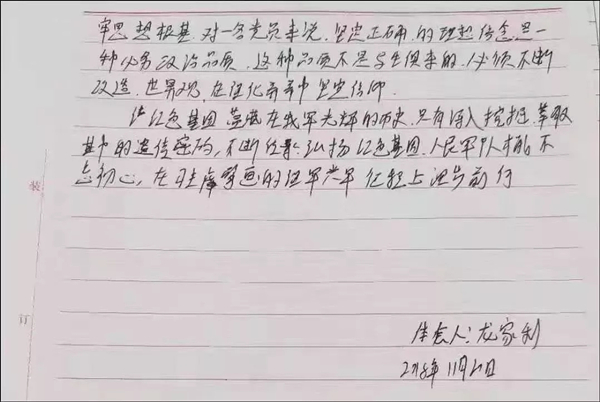 牢思想根基 对一名党员来说, 坚定正确的理想信念是一
种必备政治品质, 这种品质不是与生俱来的, 必须不断
改造世界观, 在任化弃弃中坚定信仰.
红色基因 蕴藏在我军光辉的历史, 只有深入挖掘, 萃取
其中的遗传密码, 不断 弘扬红色基因, 人民军队才能不
忘初心, 在习主席 的强军兴军征程上 步前行
装
订
体会人: 龙家利
2018年11月